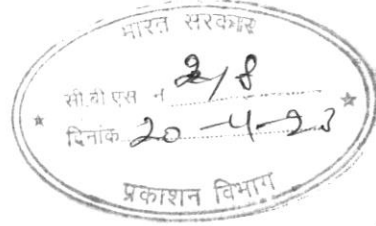 भारत सरकार
सी.बी.एस नं 218
दिनांक 20-4-23
प्रकाशन विभाग